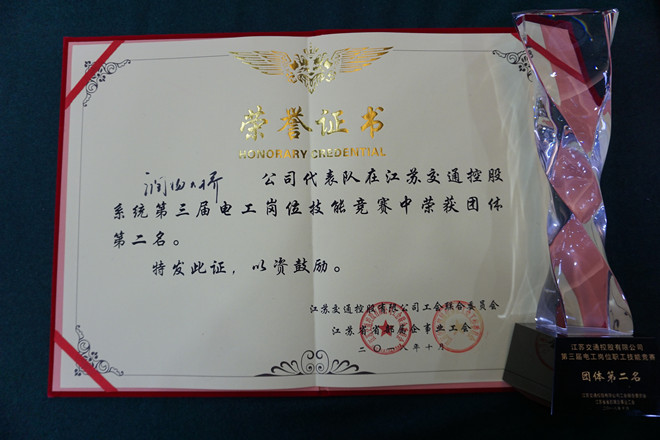 荣誉证书
HONORARY CREDENTIAL
润扬大桥 公司代表队在江苏交通控股
系统第三届电工岗位技能竞赛中荣获团体
第二名。
特发此证，以资鼓励。
江苏交通控股有限公司工会联合委员会
江苏省省部属企事业工会
二〇一八年十月
江苏交通控股有限公司
第三届电工岗位职工技能竞赛
团体第二名